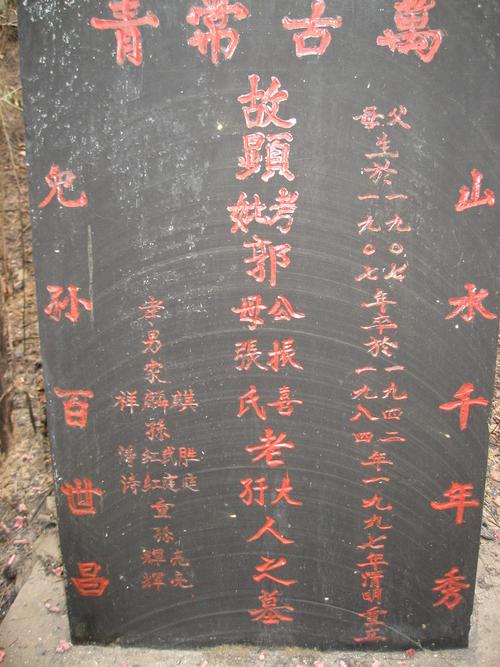 萬古常青
山水千年秀
父 生於一九〇七年卒於一九四二年一九九七年清明重立
母 一九〇七 一九八四
故顯考郭公振喜老大人之墓
妣 母張氏 孺
孝男家麒
麟
孫
祥 红 胜
涛 红 庭
重孫亮
輝
兒孙百世昌